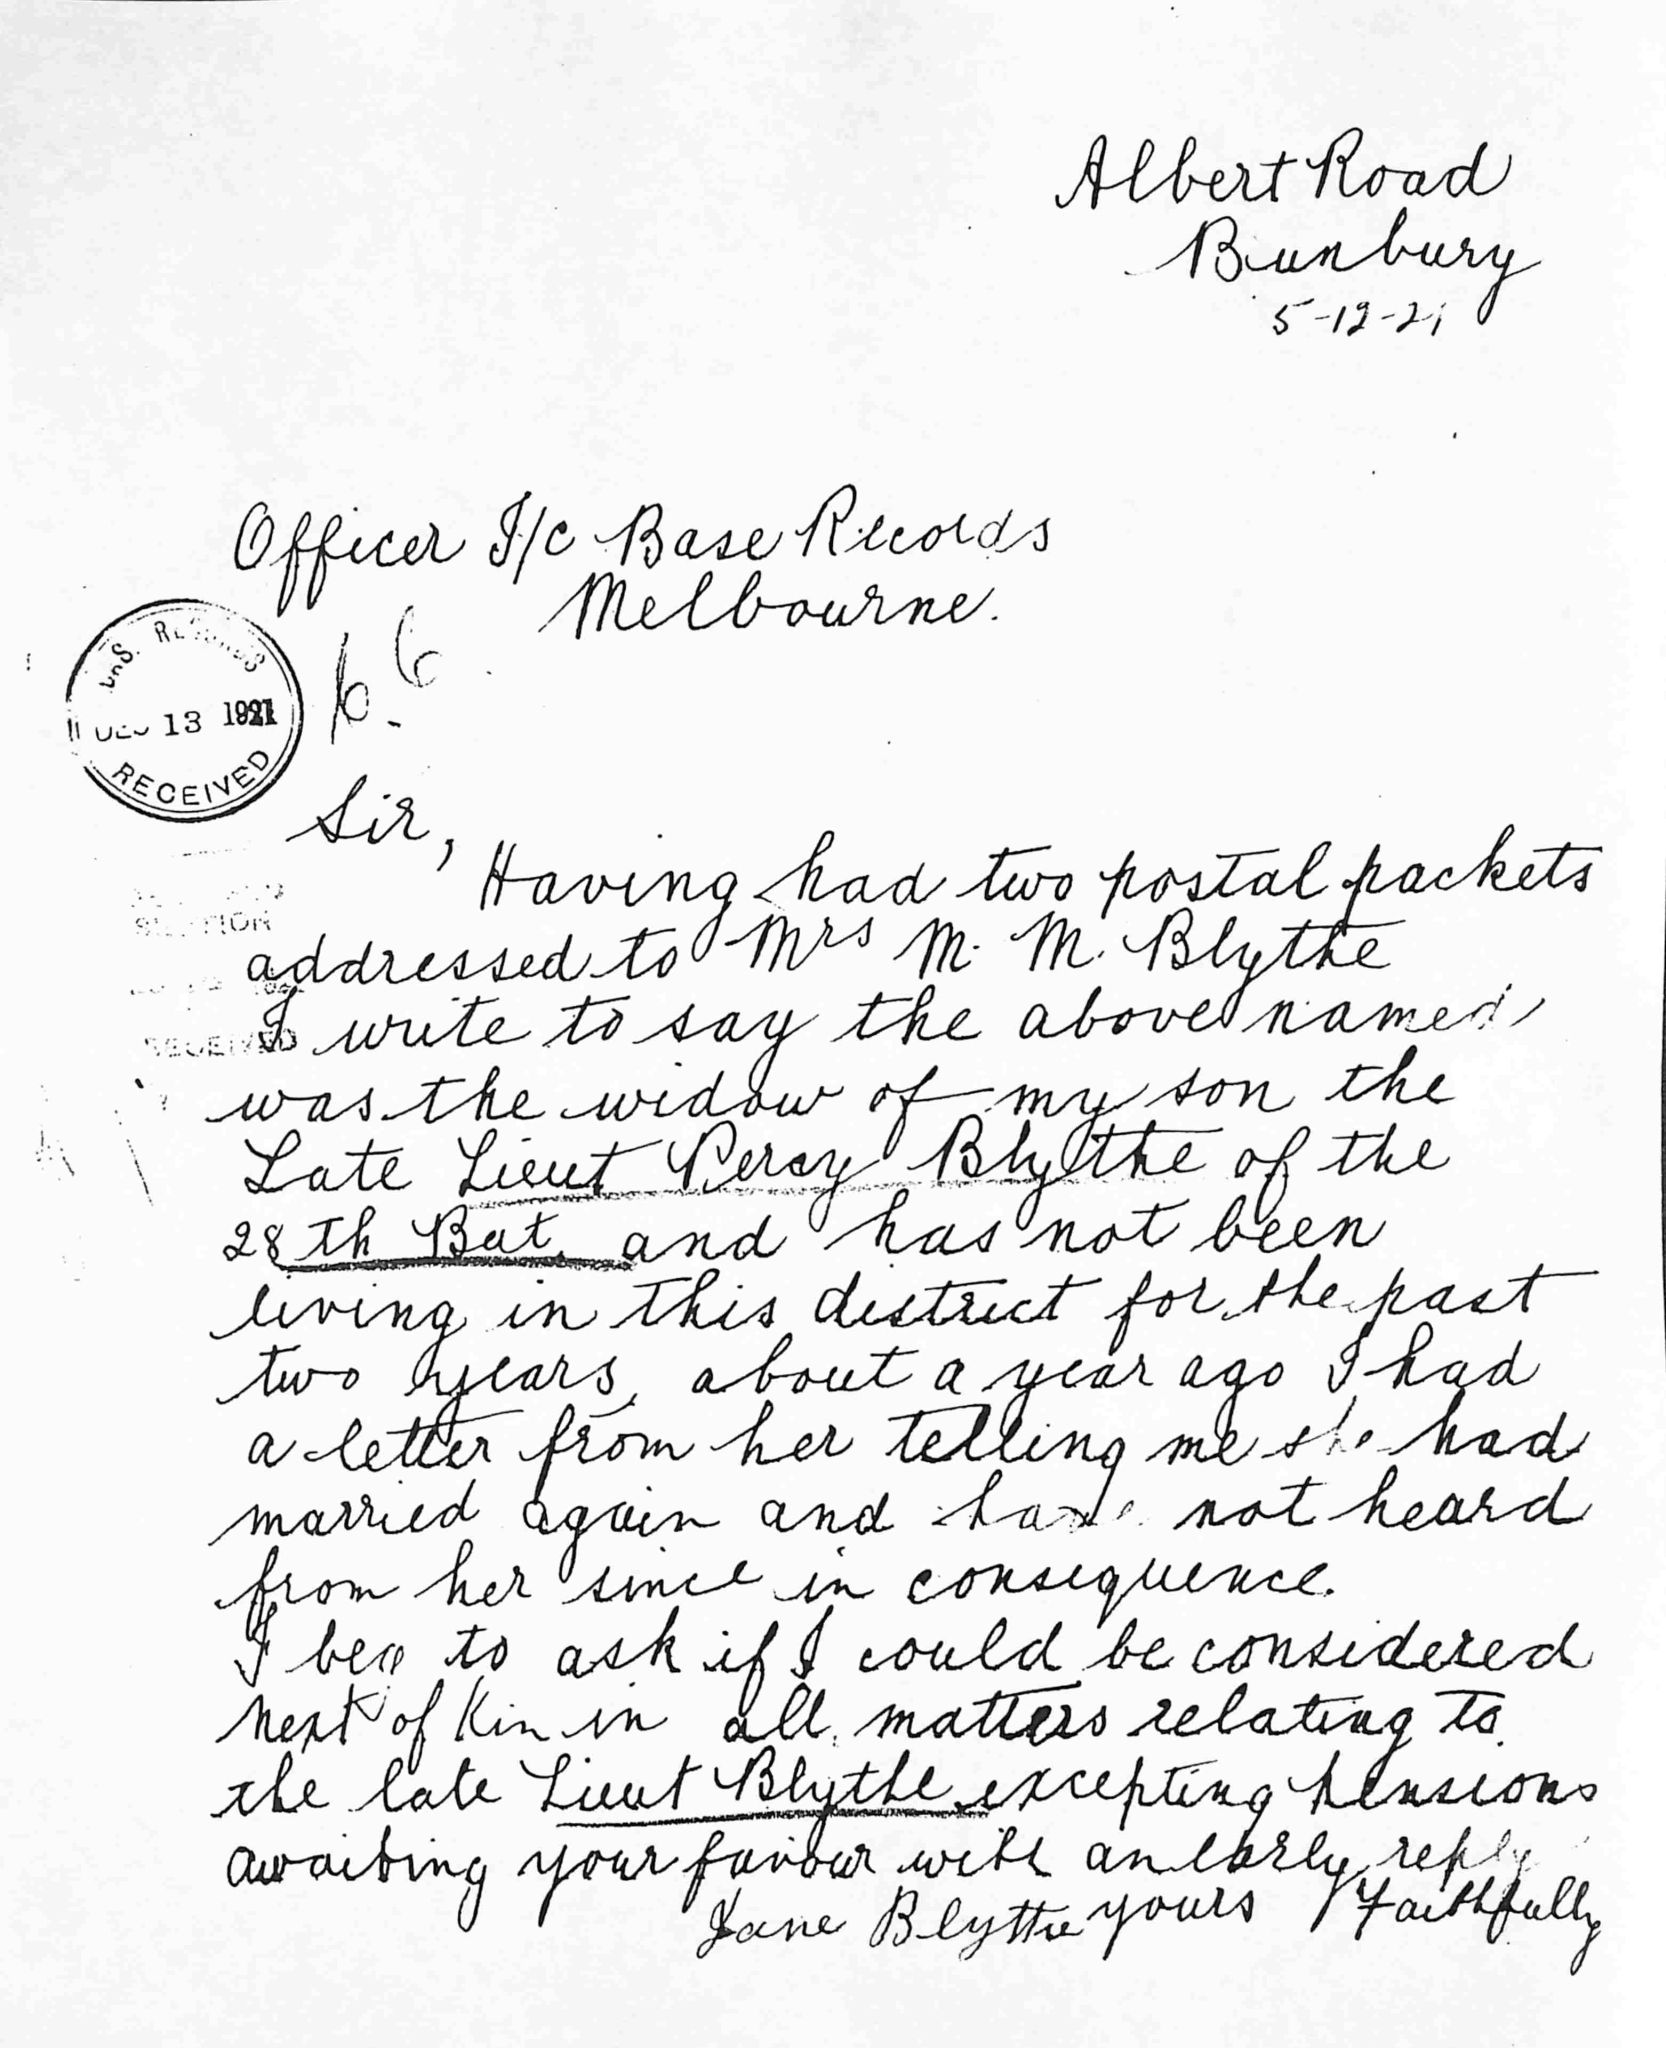 Albert Road
Bunbury
5-12-21
Officer I/c Base Records
Melbourne.
DEC 13 1921
RECEIVED
Sir,
Having had two postal packets
addressed to Mrs M. M. Blythe
I write to say the above named
RECEIVED
was the widow of my son the
Late Lieut Percy Blythe of the
28th Bat. and has not been
living in this district for the past
two years, about a year ago I had
a letter from her telling me she had
married again and have not heard
from her since in consequence.
I beg to ask if I could be considered
next of Kin in all matters relating to
the late Lieut Blythe excepting pensions
awaiting your favour with an early reply
Jane Blythe yours Faithfully